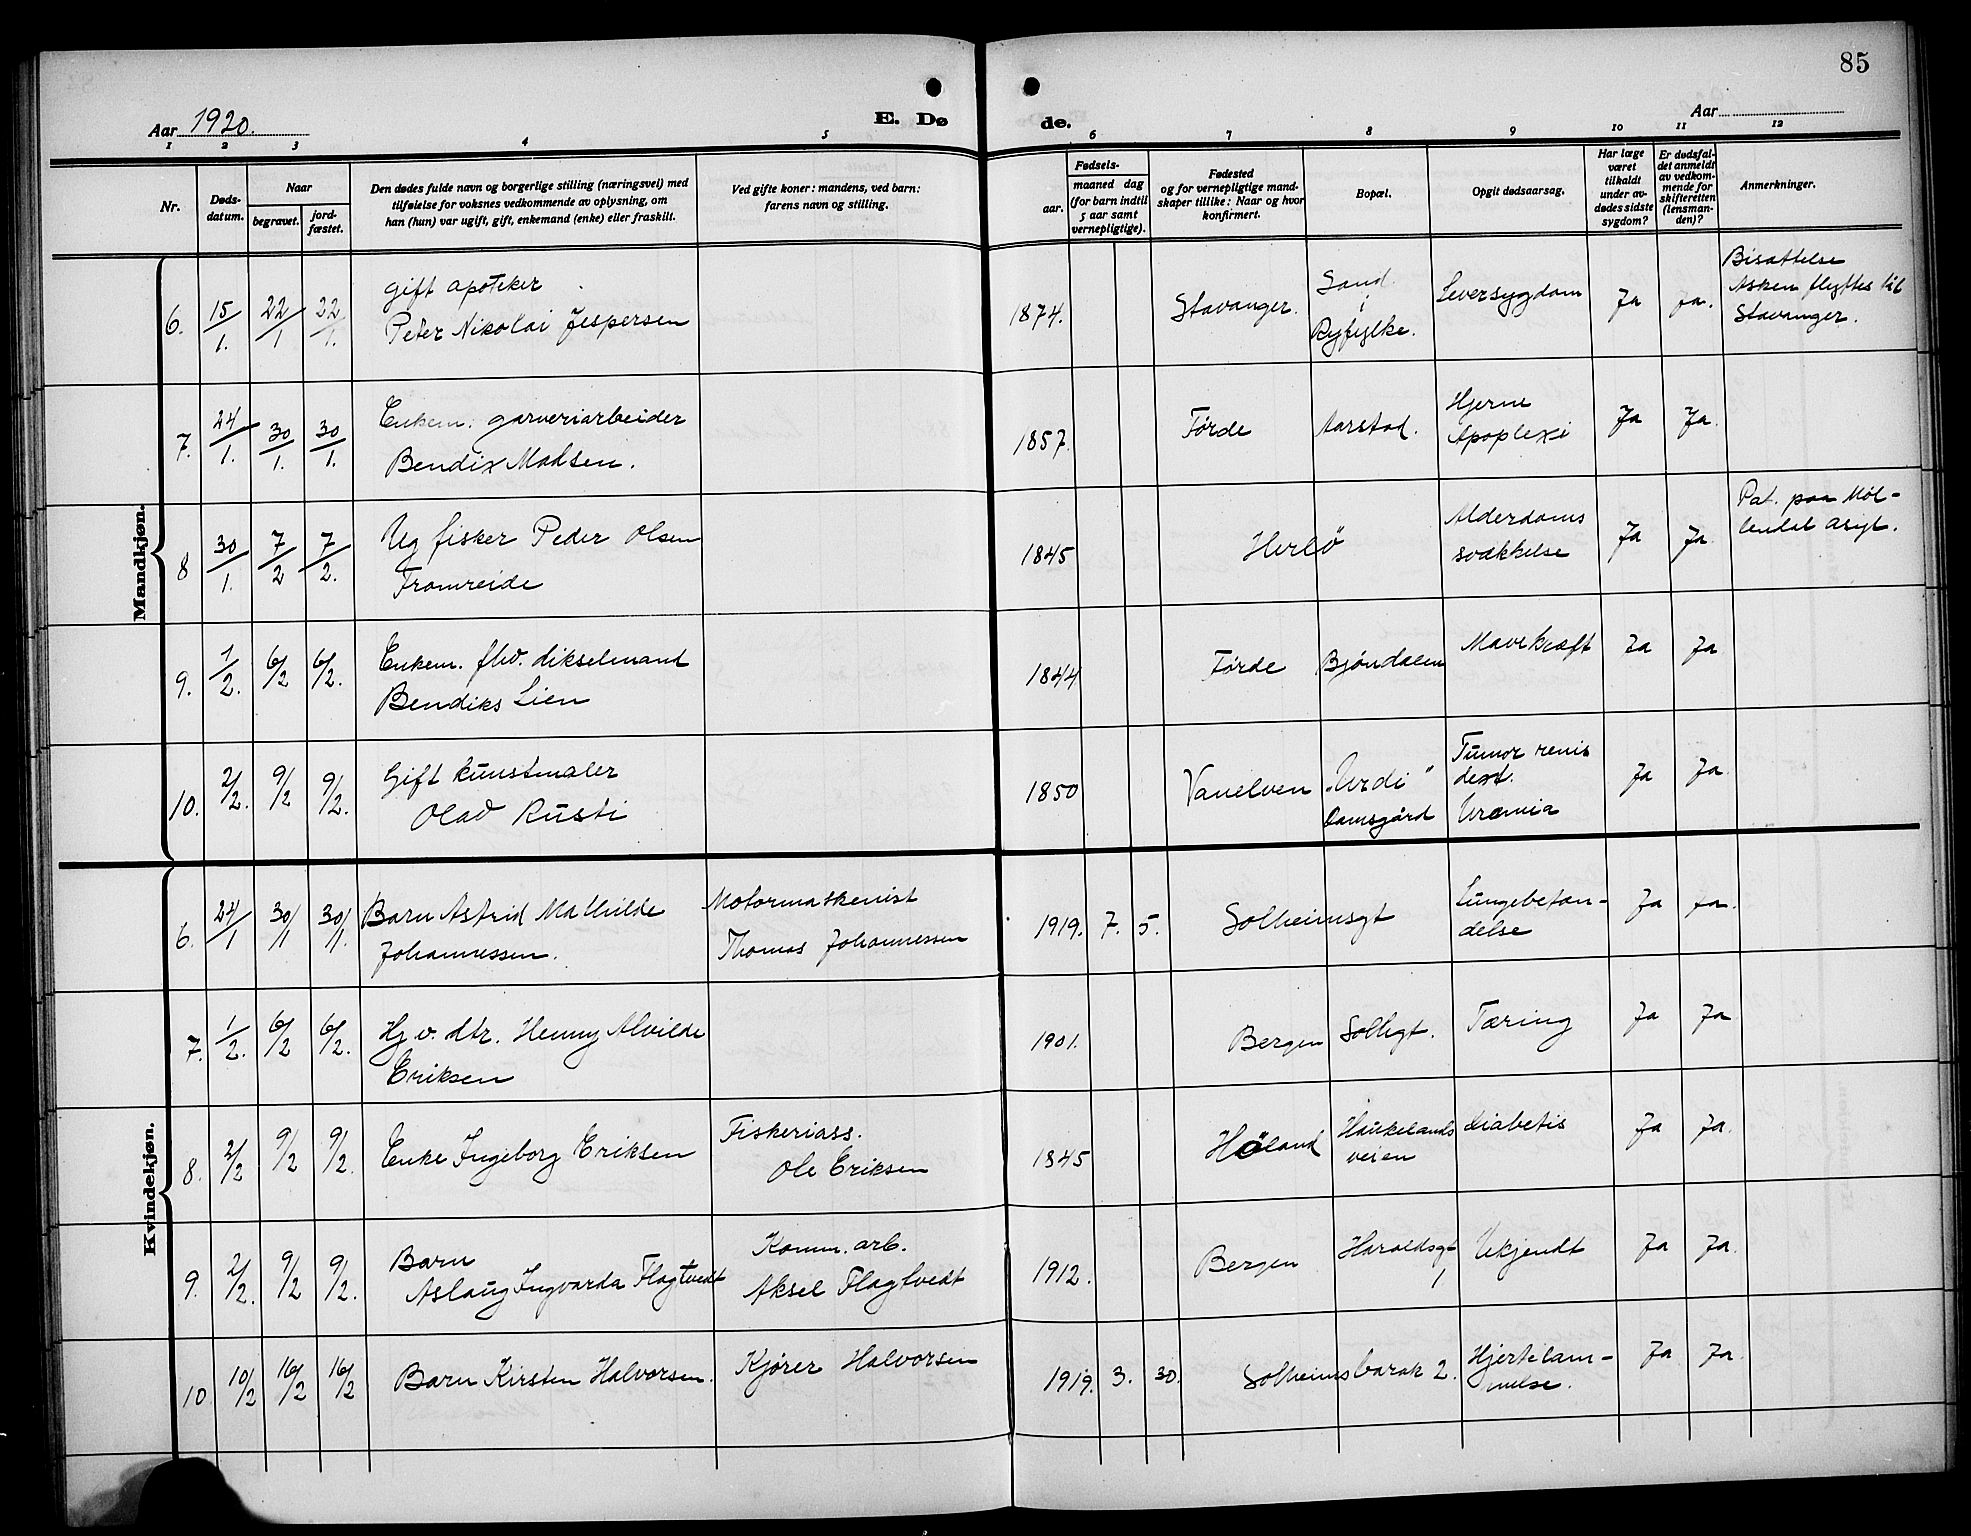 85
Aar 1920.
E. Dø
de.
Aar
1 2 3 4 5 6 7 8 9 10 11 12
Nr.
Døds-
datum.
Naar
begravet.
jord-
fæstet.
Den dødes fulde navn og borgerlige stilling (næringsvei) med
tilføielse for voksnes vedkommende av oplysning, om
han (hun) var ugift, gift, enkemand (enke) eller fraskilt.
Ved gifte koner: mandens, ved barn:
farens navn og stilling.
Fødsels-
aar.
maaned dag
(for barn indtil
5 aar samt
vernepligtige).
Fødested
og for vernepligtige mand-
skaper tillike: Naar og hvor
konfirmert.
Bopæl.
Opgit dødsaarsag.
Har læge
været
tilkaldt
under av-
dødes sidste
sygdom?
Er dødsfal-
det anmeldt
av vedkom-
mende for
skifteretten
(lensman-
den)?
Anmerkninger.
Mandkjøn.
6. 15/1. 22/1 22/1.
gift apoteker
Peter Nikolai Jespersen
1874.
Stavanger.
Sand
i
Ryfylke.
Leversygdom
Ja
Ja.
Bisættelse
Asken flyttes til
Stavanger.
7. 24/1. 30/1. 30/1.
Enkem. garveriarbeider
Bendix Madsen.
1857.
Førde
Aarstad.
Hjerne
Apoplexi
Ja
Ja.
8 30/1. 7/2 7/2.
Ug fisker Peder Olsen
Fromreide
1845
Herlö
Alderdoms
svækkelse
Ja
Ja
Pat. paa Møl-
lendal asyl.
9. 1/2. 6/2 6/2.
Enkem. fhv. dikselmand
Bendiks Lien
1844
Førde
Bjöndalen
Mavekræft
Ja
Ja
10. 2/2. 9/2 9/2.
Gift kunstmaler
Olad Rusti
1850
Vanelven
"Urdi"
Damsgård
Tumor renis
dext.
Uræmia
Ja
Ja
Kvindekjøn.
6. 24/1 30/1 30/1.
Barn Astrid Mathilde
Johannessen.
Motormaskenist
Thomas Johannessen
1919. 7. 5.
Solheimsgt
Lungebetæn-
delse
Ja
Ja.
7. 1/2. 6/2 6/2.
Hj v. dtr. Henny Alvilde
Eriksen
1901.
Bergen
Solhgt.
Tæring
Ja
Ja
8. 2/2 9/2 9/2.
Enke Ingeborg Eriksen
Fiskeriass.
Ole Eriksen
1845
Höland
Haukelands
veien
Diabetis
Ja
Ja.
9. 2/2. 9/2 9/2.
Barn
Aslaug Ingvarda Flagtvedt
Komm. arb.
Aksel Flagtvedt
1912.
Bergen
Haraldsgt
1
Ukjendt
Ja
Ja.
10 10/2 16/2 16/2
Barn Kirsten Halvorsen.
Kjører Halvorsen
1919. 3. 30.
Solheimsbarak 2.
Hjertelam-
melse.
Ja
Ja.